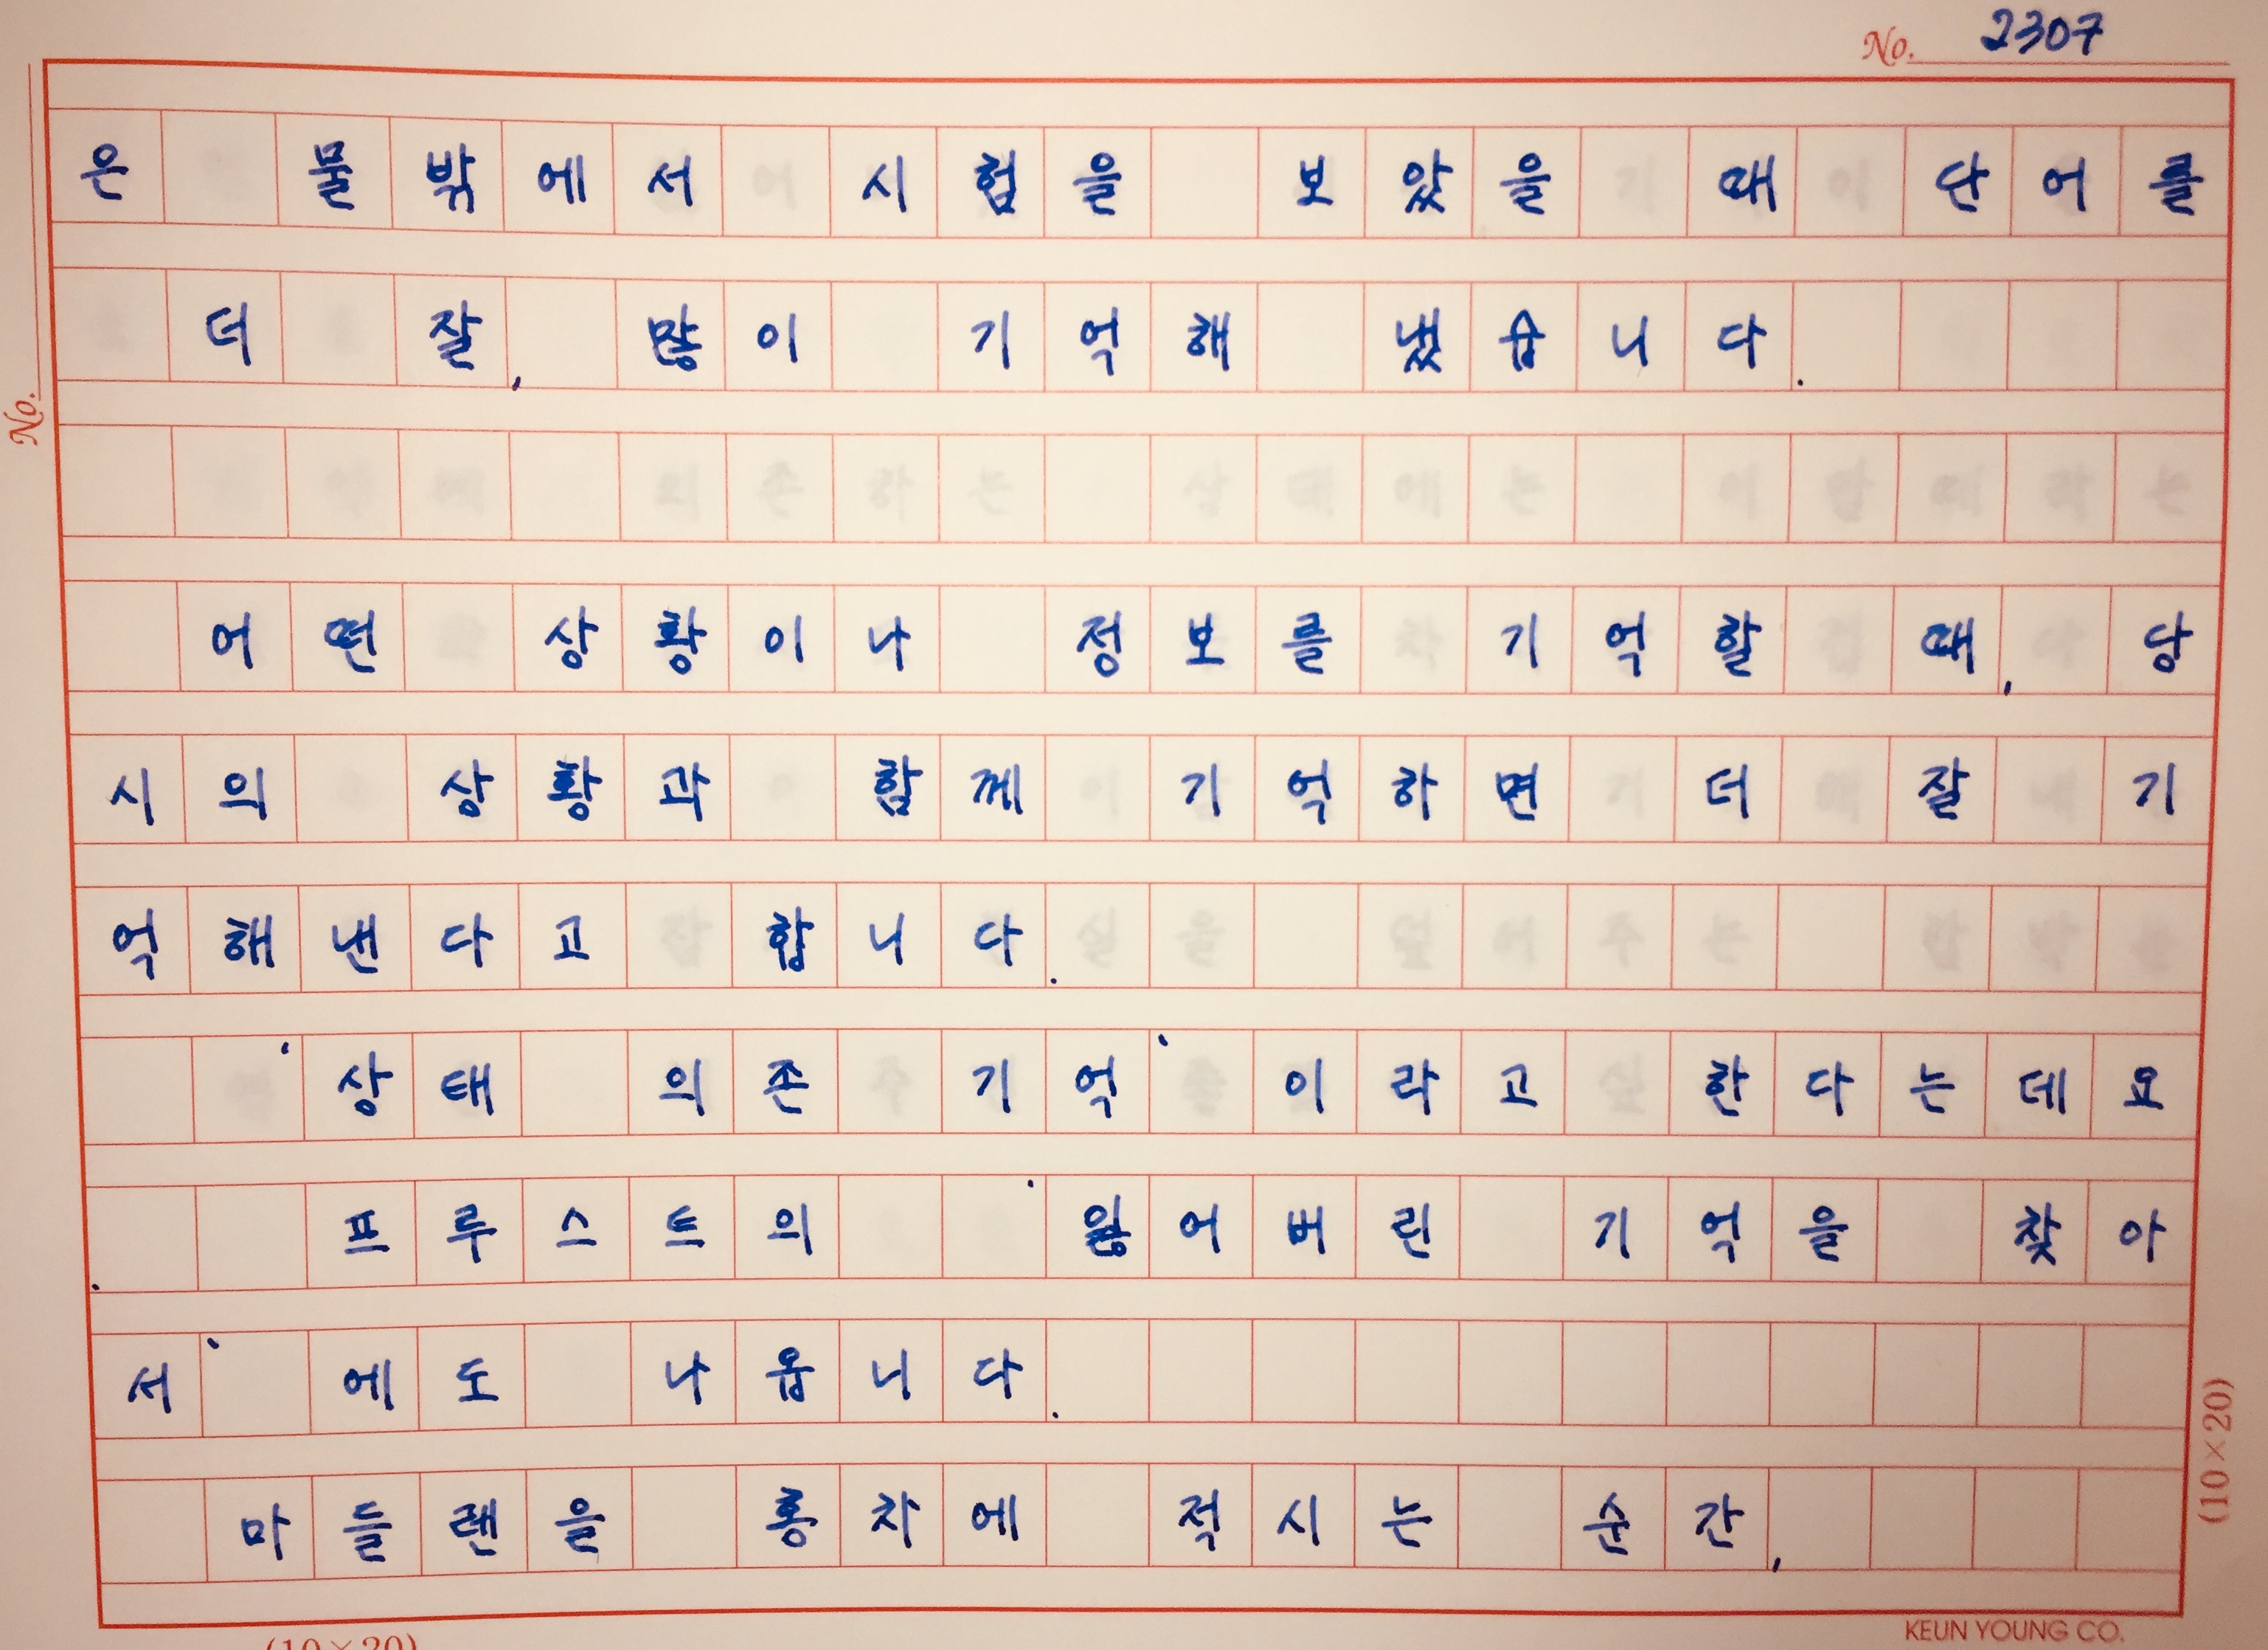 No. 2307
은 물밖에서 시험을 보았을 때 단어를
더 잘, 많이 기억해 냈습니다.
No.
어떤 상황이나 정보를 기억할 때, 당
시의 상황과 함께 기억하면 더 잘 기
억해낸다고 합니다.
'상태 의존 기억'이라고 한다는데요
. 프루스트의 '잃어버린 기억을 찾아
서' 에도 나옵니다.
마들렌을 홍차에 적시는 순간,
(10×20)
KEUN YOUNG CO.
(10×20)